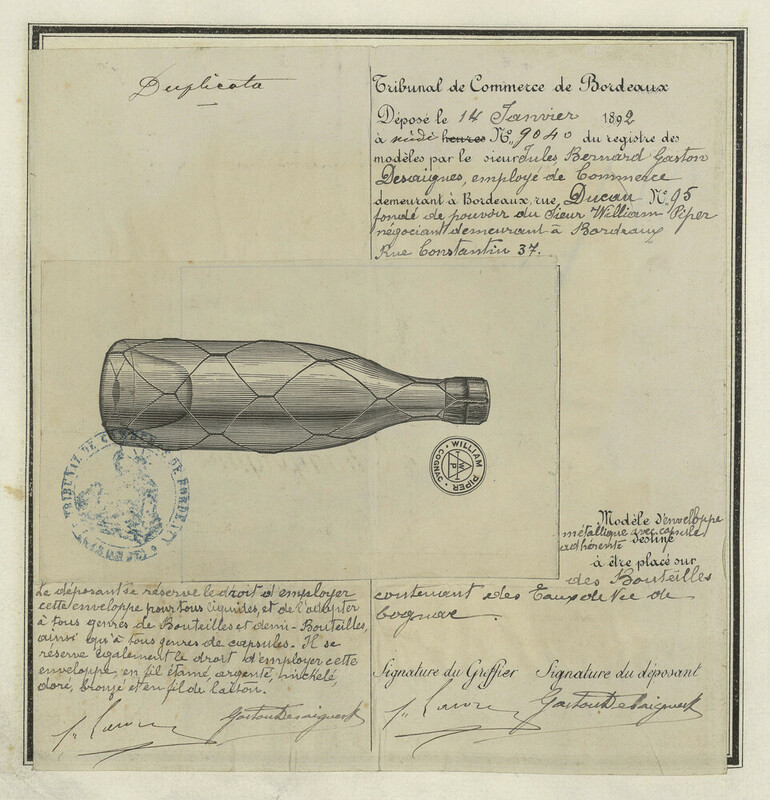 Duplicata
Tribunal de Commerce de Bordeaux
Déposé le 14 Janvier 1892
à midi heures N° 9040 du registre des
modèles par le sieur Jules, Bernard Gaston
Desaigues, employé de Commerce
demeurant à Bordeaux, rue Ducau N° 95
fondé de pouvoir du Sieur William Piper
négociant demeurant à Bordeaux
Rue Constantin 37.
WILLIAM PIPER
COGNAC
WP
TRIBUNAL DE COMMERCE DE BORDEAUX
Modèle d'enveloppe
métallique avec capsule
adhérente destiné
à être placé sur
des Bouteilles
contenant des Eaux de Vie de
Cognac.
Le déposant se réserve le droit d'employer
cette enveloppe pour tous liquides, et de l'adapter
à tous genres de Bouteilles et demi-Bouteilles,
ainsi qu'à tous genres de capsules. Il se
réserve également le droit d'employer cette
enveloppe, en fil étamé, argenté, nickelé,
doré, bronzé et en fil de laiton.
Signature du Greffier Signature du déposant